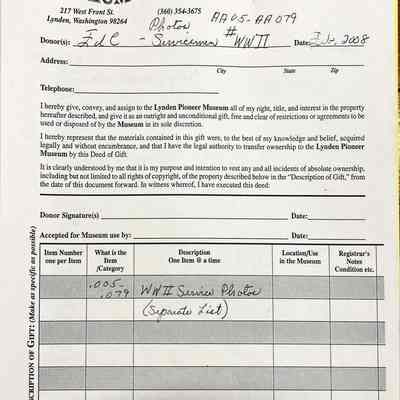 217 West Front St. (360) 354-3675
Lynden, Washington 98264
Photos AA05-AA079
Donor(s): Ed C - Servicemen # WWII Date: 2008
Address:
City State Zip
Telephone:
I hereby give, convey, and assign to the Lynden Pioneer Museum all of my right, title, and interest in the property
hereafter described, and give it as an outright and unconditional gift, free and clear of restrictions or agreements to be
used or disposed of by the Museum in its sole discretion.
I hereby represent that the materials contained in this gift were, to the best of my knowledge and belief, acquired
legally and without encumbrance, and that I have the legal authority to transfer ownership to the Lynden Pioneer
Museum by this Deed of Gift.
It is clearly understood by me that it is my purpose and intention to vest any and all incidents of absolute ownership,
including but not limited to all rights of copyright, of the property described below in the "Description of Gift," from
the date of this document forward. In witness whereof, I have executed this deed:
Donor Signature(s) Date:
Accepted for Museum use by: Date:
Item Number What is the Description Location/Use Registrar's
one per Item Item One Item @ a time in the Museum Notes
/Category Condition etc.
.005-
.079 WWII Service Photos
(Separate List)
SCRIPTION OF GIFT: (Make as specific as possible)